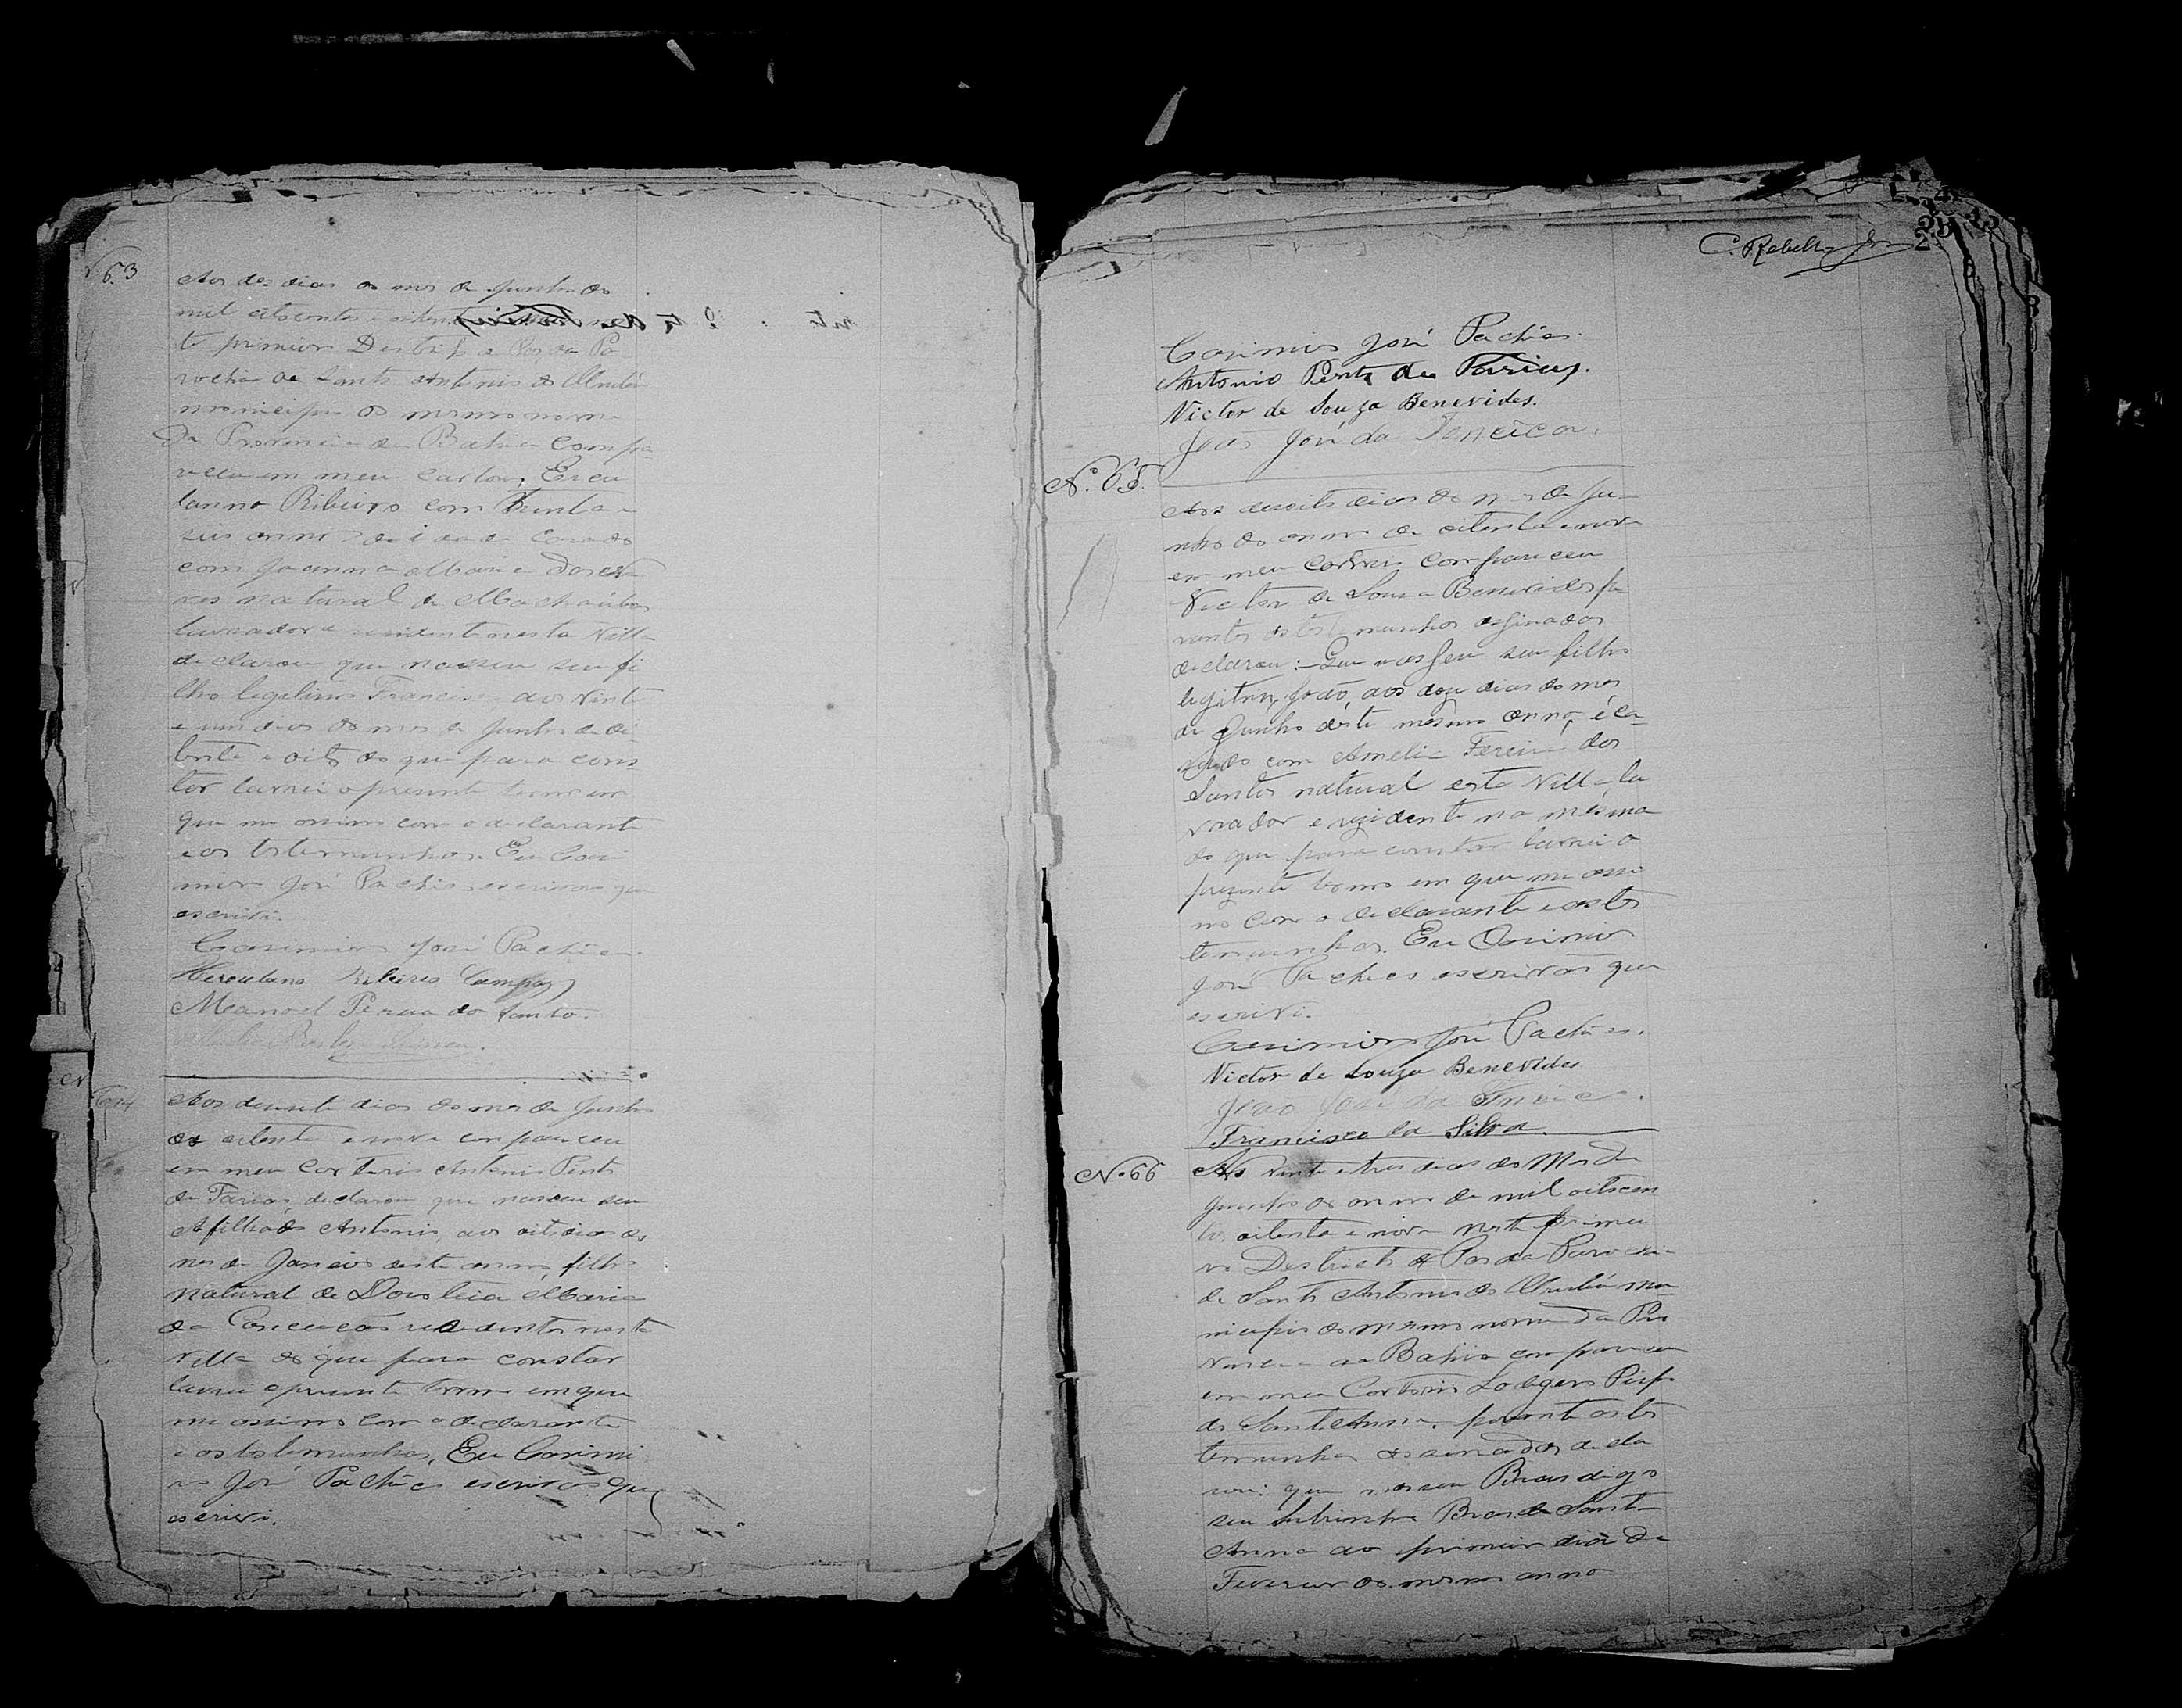 N 63
Aos des dias do mes de Junho de
mil oitocentos e oitenta
te primeiro Destrito de Pas da Pa
rochia de Santo Antonio do
municipio do mesmo nome
da Provincia da Bahia compa
receu em meu cartorio, Ercu
lanno Ribeiro com trinta e
seis annos de idade Casado
com Joanna Maria das Ne
ves natural de Machaúbas
lavrador e residente nesta Villa
declarou que nasceu seu fi
lho legitimo Francisco aos vinte
e um dias do mes de Junho de oi
tenta e oito do que para cons
tar lavrei o presente termo em
que me assino com o declarante
e as testemunhas. Eu Casi
miro José Pachêco escrivão que
escrivi.
Casimiro José Pachêco
Herculano Ribeiro Campos
Manoel Pereira do Santo.
64
Aos desesete dias do mes de Junho
de oitenta e nove compareceu
em meu Cartorio Antonio Pinto
de Farias, declarou que nasceu seu
Afilhado Antonio, aos oito dias do
mes de Janeiro deste anno, filho
natural de Doroteia Maria
da Conceicão residentes nesta
Villa do que para constar
lavrei o presente termo em que
me assino com o declarante
e as testemunhas, Eu Casimi
ro José Pachêco escrivão que
escrivi.
C. Rebello Jor
Casimiro José Pachêco.
Antonio Pinto de Farias.
Victor de Souza Benevides.
João José da
N.o 65.
Aos desoito dias do mes de Ju
nho do anno de oitenta e nove
em meu cartorio compareceu
Victor de Souza Benevides pe
rantes as testemunhas assinadas
declarou: Que nasceu seu filho
legitimo João, aos doze dias do mes
de Junho déste mesmo anno, é ca
sado com Amelia Fereira dos
Santos natural esta Villa la
vrador e rezidente na mesma
do que para constar lavrei o
presente termo em que me assi
no com o declarante e as tes
temunhas. Eu Casimiro
José Pachêco escrivão que
escrivi.
Casimiro José Pachêco.
Victor de Souza Benevides
João José da
Francisco da Silva
No 66
Aos vinte e tres dias do Mes de
Junho do anno de mil oitocen
tos oitenta e nove neste primei
ro Destricto de Pas da Parochia
de Santo Antonio do mu
nicipio do mesmo nome da Pro
vincia da Bahia compareceu
em meu Cartorio
de SantAnna, perante as tes
temunhas assinadas decla
rou: que nasceu Bras digo
seu sobrinho Bras de Santa
Anna ao primeiro dia de
Fevereiro do mesmo anno